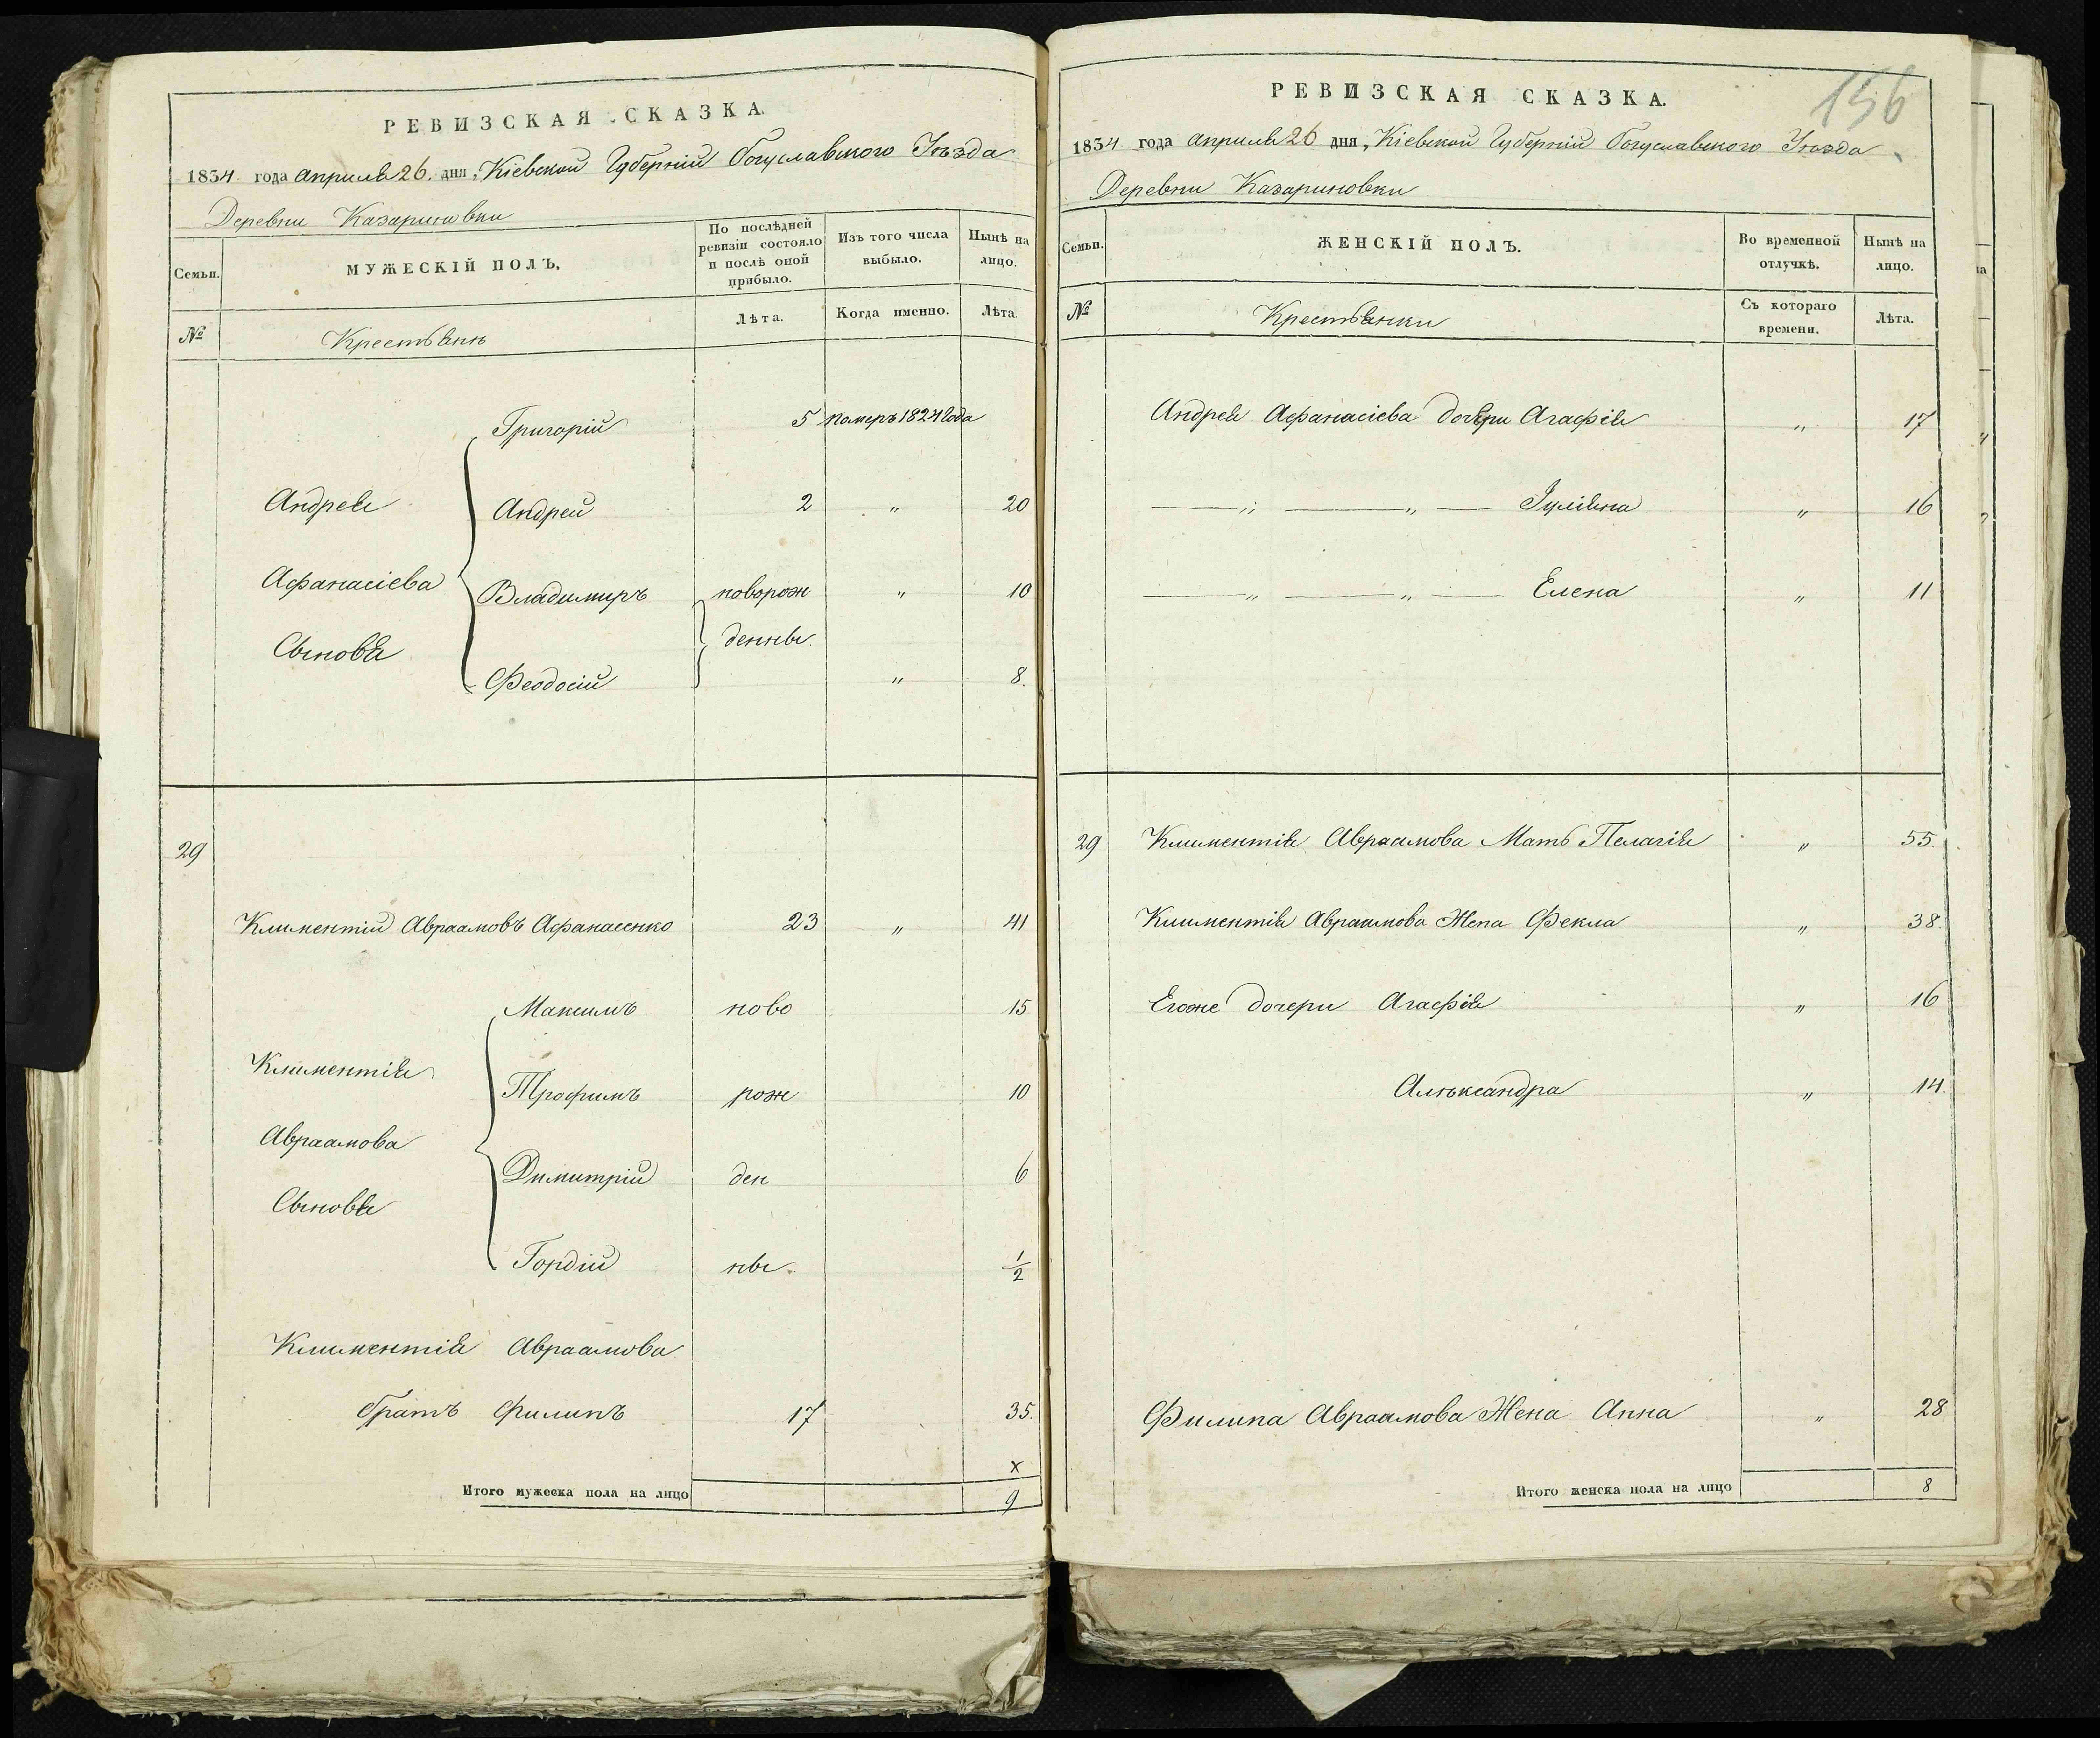 РЕВИЗСКАЯ СКАЗКА.
1834 года апреля 26. дня, Кіевской Губерніи Богуславского Уѣзда
Деревни Казариновки
Семьи.
МУЖЕСКІЙ ПОЛЪ.
По послѣдней ревизіи состояло и послѣ оной прибыло.
Изъ того числа выбыло.
Нынѣ на лицо.
№
Крестьянѣ
Лѣта.
Когда именно.
Лѣта.
Григорій 5 померъ 1824 Года
Андрея Андрей 2 „ 20
Афанасіева Владимиръ новорож „ 10
Сыновья денны.
Феодосій „ 8.
29
Климентій Авраамовъ Афанасенко 23 „ 41
Максимъ ново 15
Климентія
Трофимъ рож 10
Авраамова
Димитрій ден 6
Сыновья
Гордій ны. 1/2
Климентія Авраамова
братъ Филипъ 17 35.
x
Итого мужеска пола на лицо 9
156
РЕВИЗСКАЯ СКАЗКА.
1834 года апреля 26 дня, Кіевской Губерніи Богуславского Уѣзда
Деревни Казариновки
Семьи.
ЖЕНСКІЙ ПОЛЪ.
Во временной отлучкѣ.
Нынѣ на лицо.
№
Крестьянки
Съ котораго времени.
Лѣта.
Андрея Афанасіева дочери Агафія „ 17
„ „ Іуліяна „ 16
„ „ Елена „ 11
29 Климентія Авраамова Мать Пелагія „ 55.
Климентія Авраамова Жена Фекла „ 38.
Егоже дочери Агафія „ 16
Алѣксандра „ 14.
Филипа Авраамова Жена Анна „ 28
Итого женска пола на лицо 8